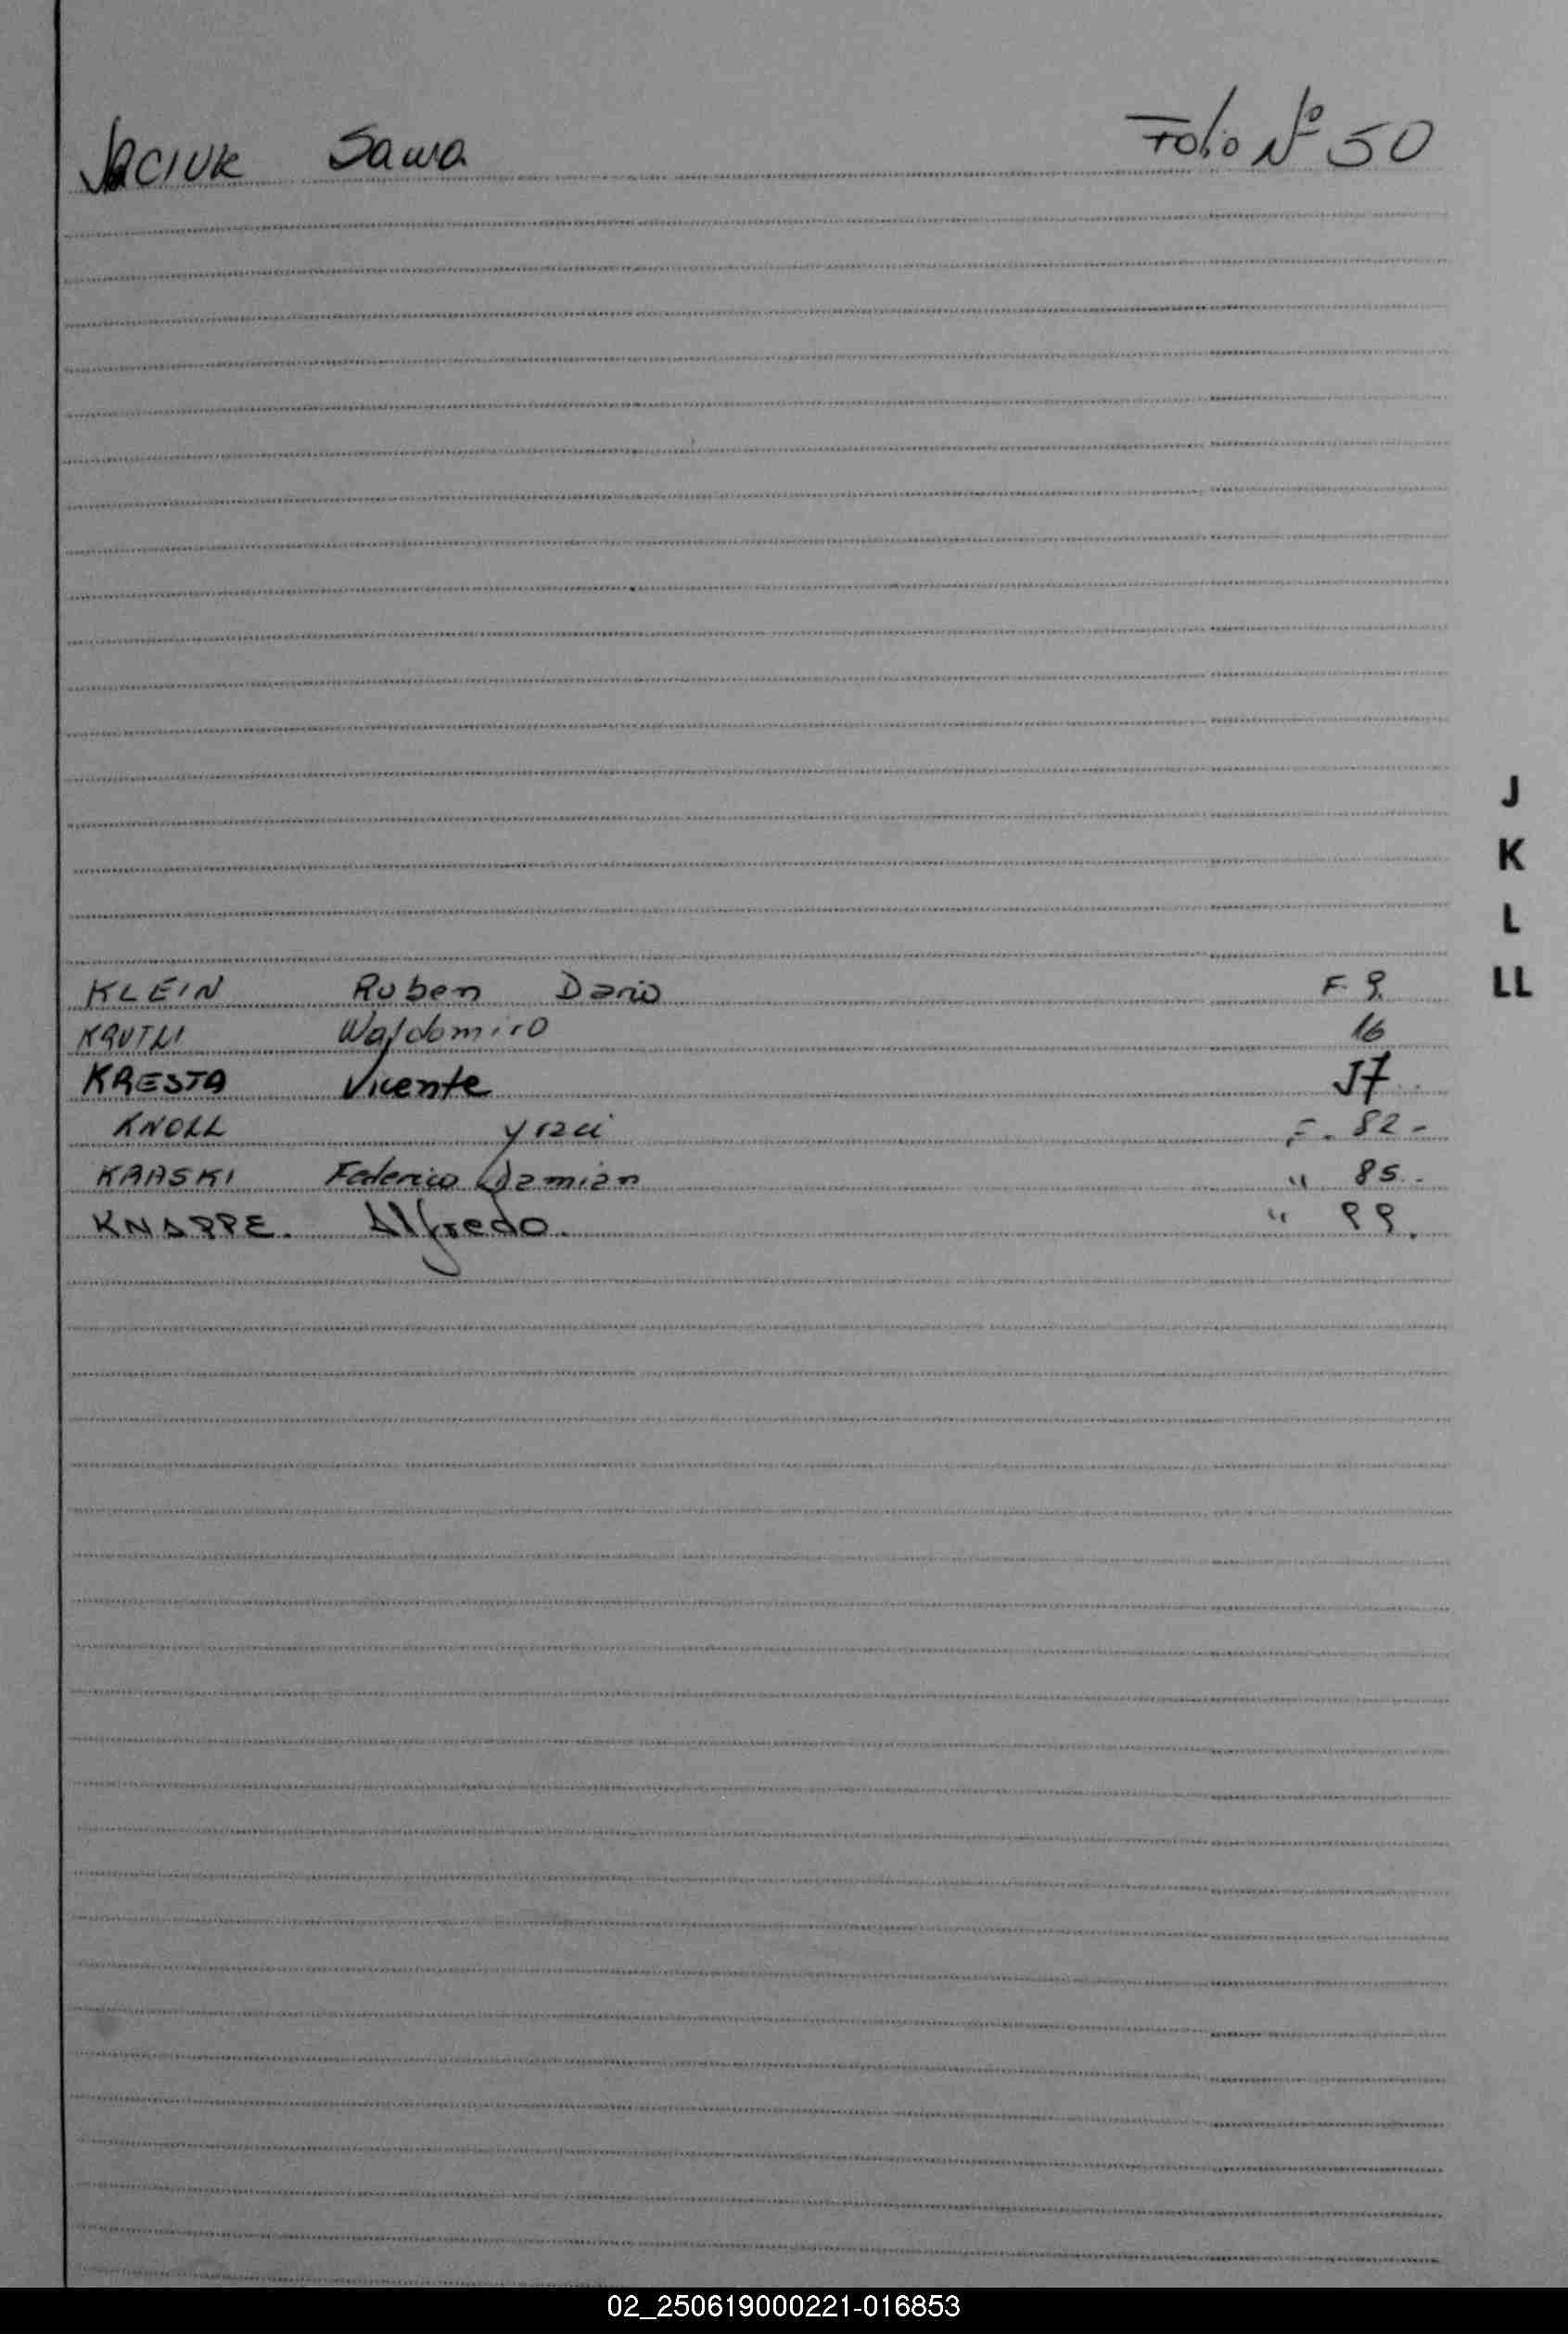 JACIUK Sawa Folio Nº 50
J
K
L
LL
KLEIN Ruben Dario F. 9.
KRUTLI Waldomiro 16
KRESTA Vicente 17
KNOLL yraci F. 82-
KRASKI Federico Damian " 85.
KNAPPE. Alfredo. " 99.
02_250619000221-016853